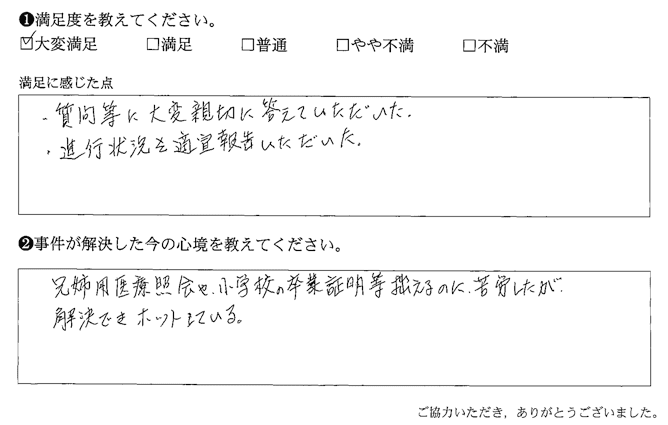 ❶満足度を教えてください。
☑大変満足 □満足 □普通 □やや不満 □不満
満足に感じた点
・質問等に大変親切に答えていただいた.
・進行状況を適宜報告いただいた.
❷事件が解決した今の心境を教えてください。
兄姉用医療照会や、小学校の卒業証明等揃えるのに、苦労したが、
解決できホットしている。
ご協力いただき，ありがとうございました。